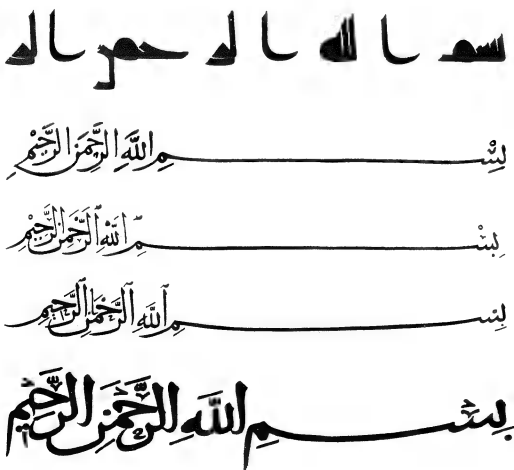 بسم الله الرحمن الر
بِسْمِ اللَّهِ الرَّحْمَنِ الرَّحِيْمِ
بِسْمِ اللَّهِ الرَّحْمَنِ الرَّحِيْمِ
بِسْمِ اللَّهِ الرَّحْمَنِ الرَّحِيْمِ
بِسْمِ اللَّهِ الرَّحْمَنِ الرَّحِيْمِ